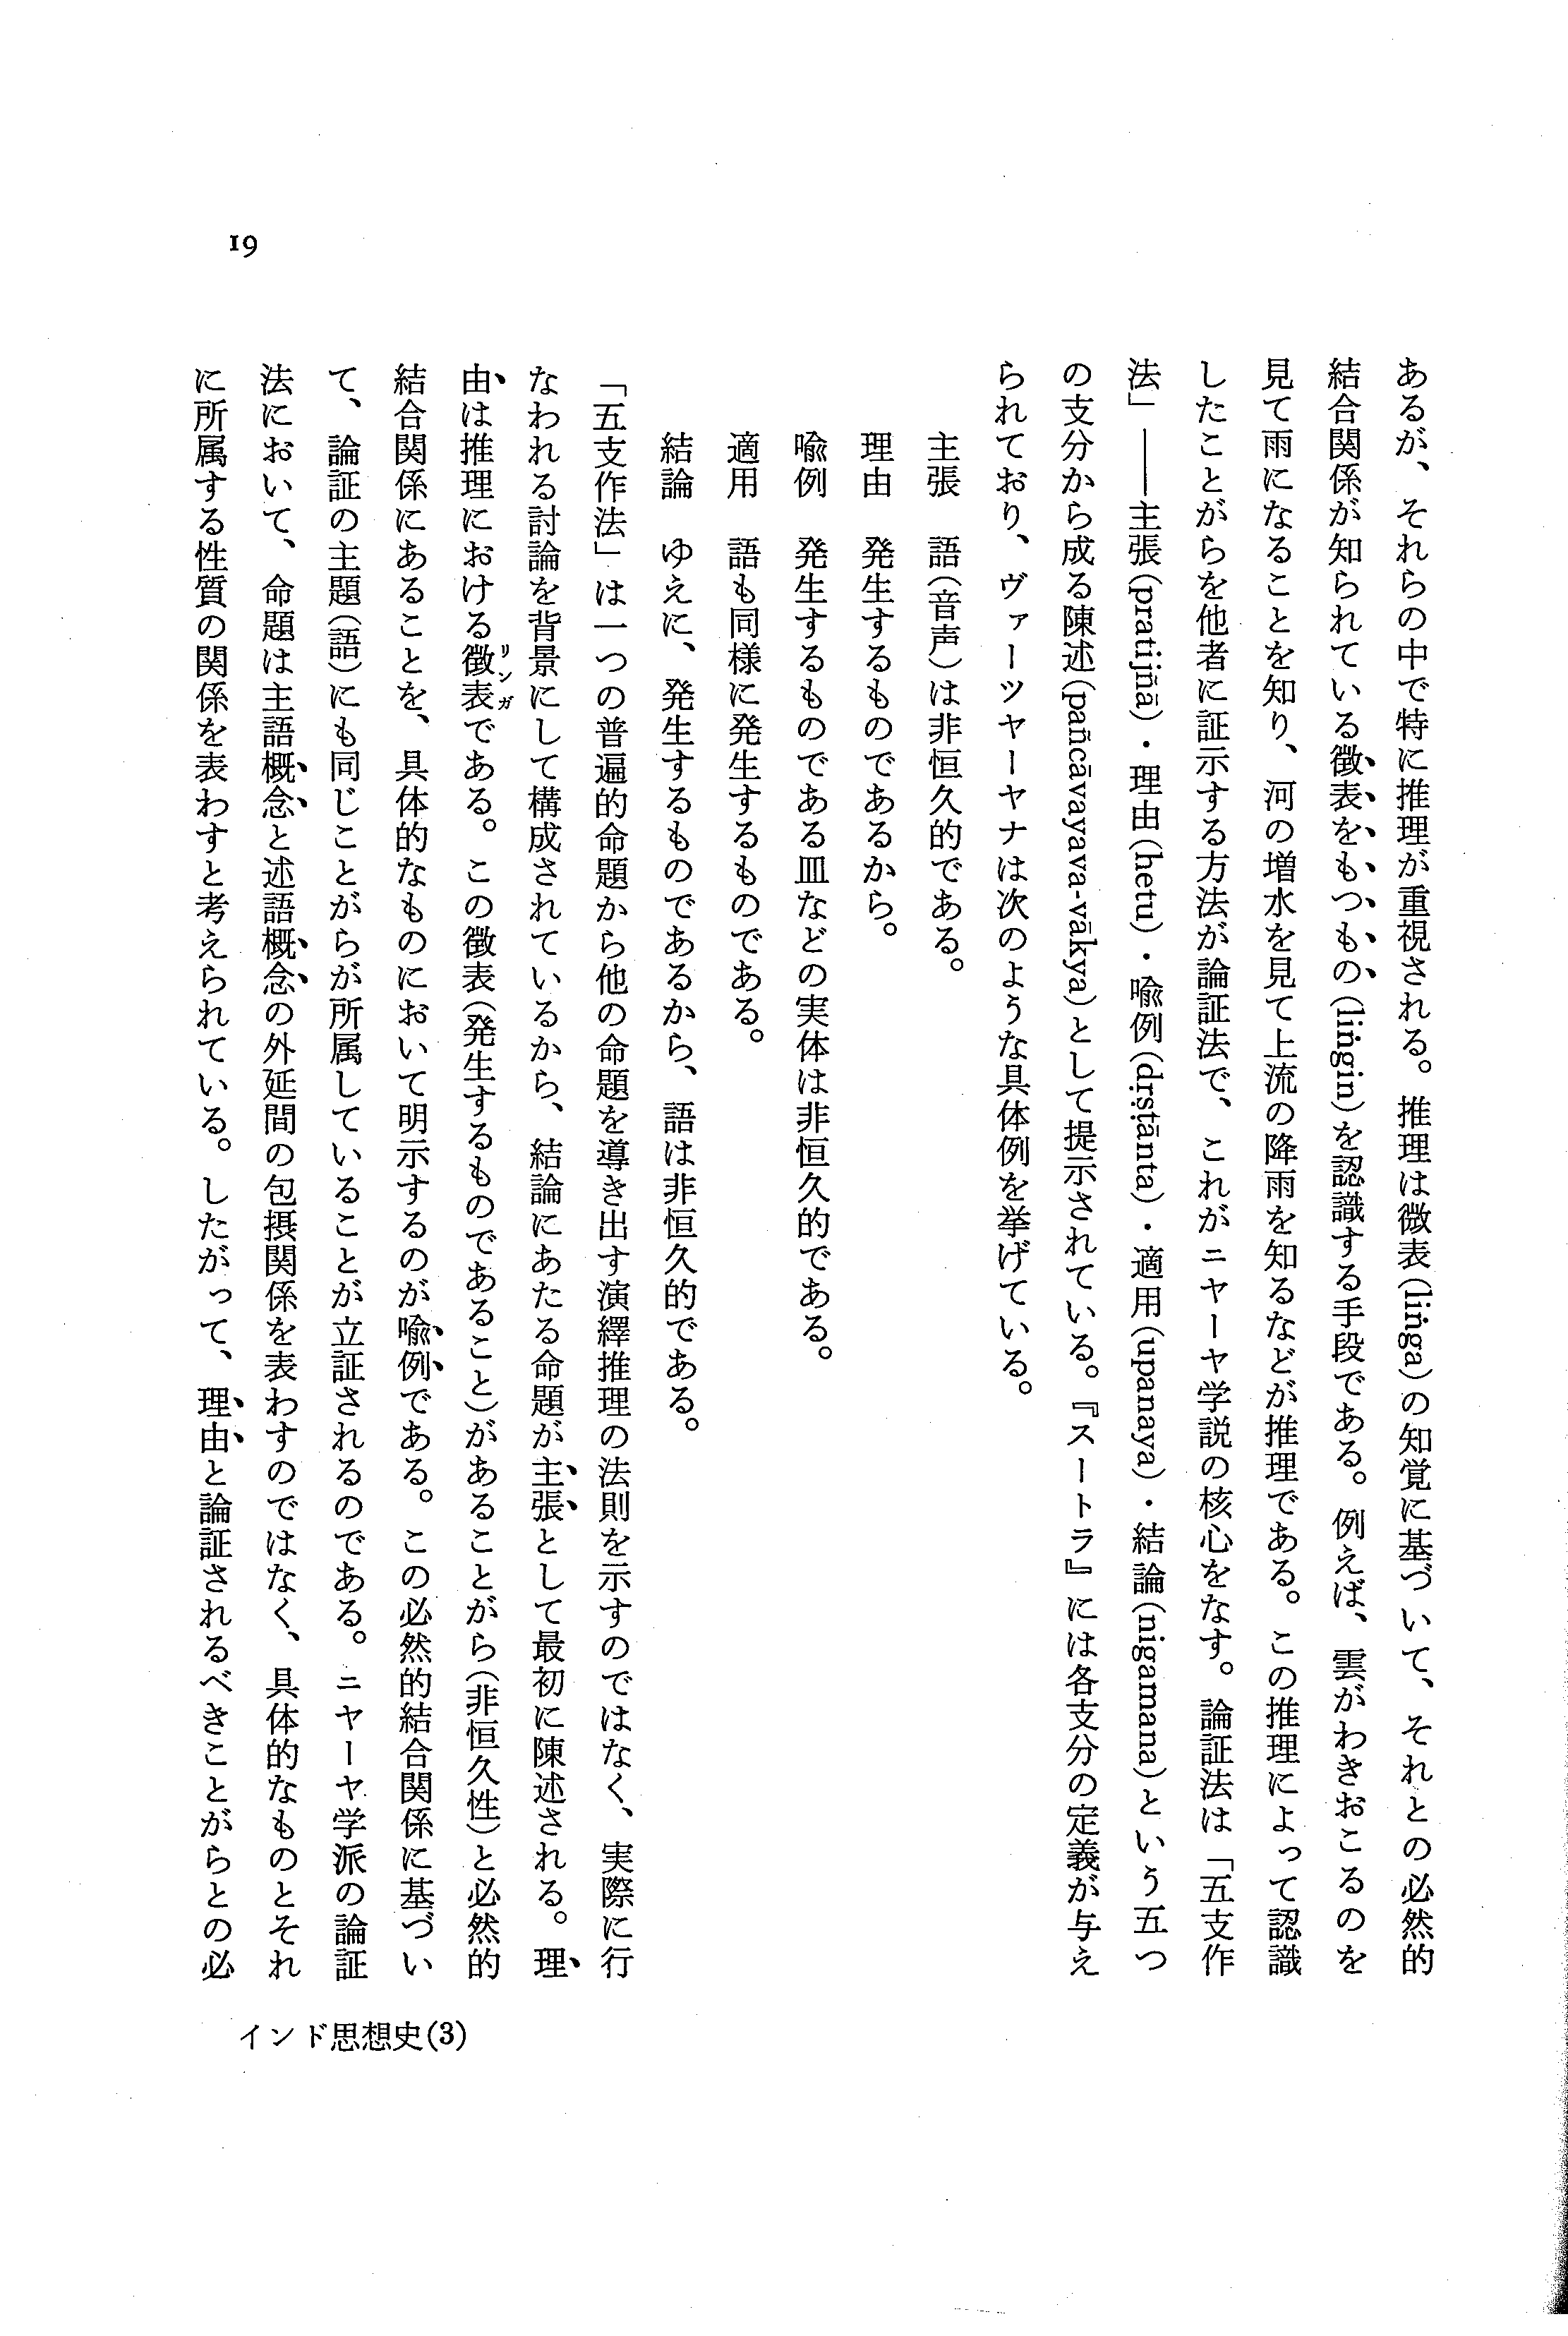 あるが、それらの中で特に推理が重視される。推理は徴表(liṅga)の知覚に基づいて、それとの必然的
結合関係が知られている徴表をもつもの(liṅgin)を認識する手段である。例えば、雲がわきおこるのを
見て雨になることを知り、河の増水を見て上流の降雨を知るなどが推理である。この推理によって認識
したことがらを他者に証示する方法が論証法で、これがニヤーヤ学説の核心をなす。論証法は「五支作
法」――主張(pratijñā)・理由(hetu)・喩例(dṛṣṭānta)・適用(upanaya)・結論(nigamana)という五つ
の支分から成る陳述(pañcāvayava-vākya)として提示されている。『スートラ』には各支分の定義が与え
られており、ヴァーツヤーヤナは次のような具体例を挙げている。
主張　語(音声)は非恒久的である。
理由　発生するものであるから。
喩例　発生するものである皿などの実体は非恒久的である。
適用　語も同様に発生するものである。
結論　ゆえに、発生するものであるから、語は非恒久的である。
「五支作法」は一つの普遍的命題から他の命題を導き出す演繹推理の法則を示すのではなく、実際に行
なわれる討論を背景にして構成されているから、結論にあたる命題が主張として最初に陳述される。理
由は推理における徴表リンガである。この徴表(発生するものであること)があることがら(非恒久性)と必然的
結合関係にあることを、具体的なものにおいて明示するのが喩例である。この必然的結合関係に基づい
て、論証の主題(語)にも同じことがらが所属していることが立証されるのである。ニヤーヤ学派の論証
法において、命題は主語概念と述語概念の外延間の包摂関係を表わすのではなく、具体的なものとそれ
に所属する性質の関係を表わすと考えられている。したがって、理由と論証されるべきことがらとの必
インド思想史(3)
19